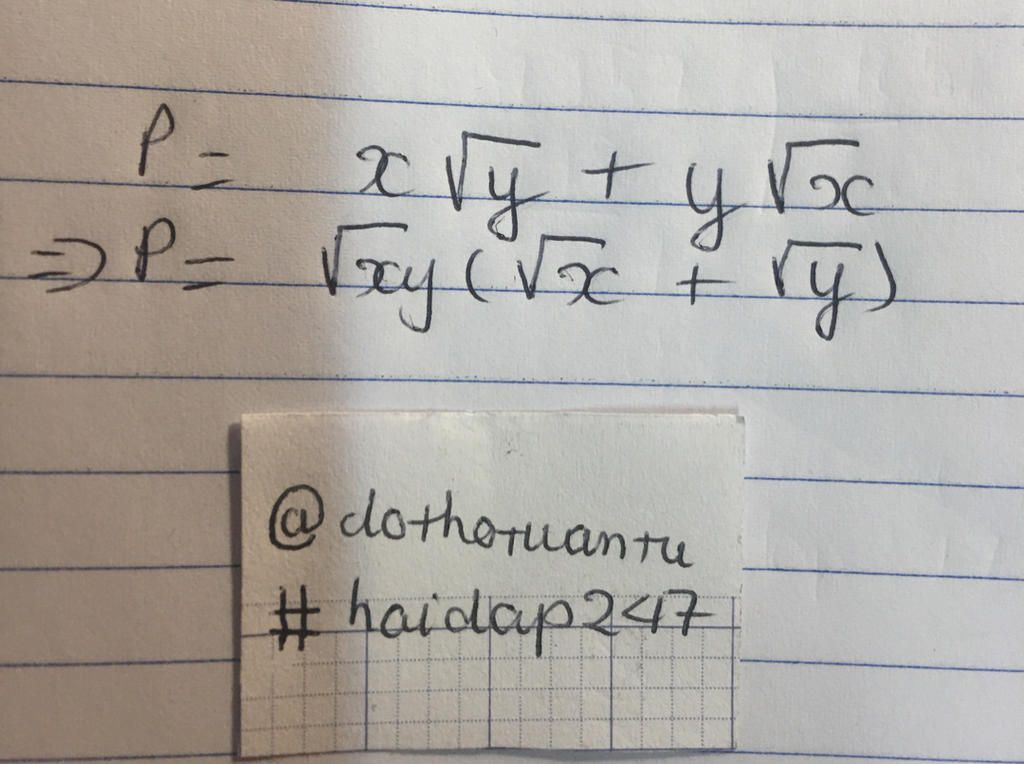 P = x √y + y √x
=> P = √xy ( √x + √y )
@dothotuantu
# haidap247